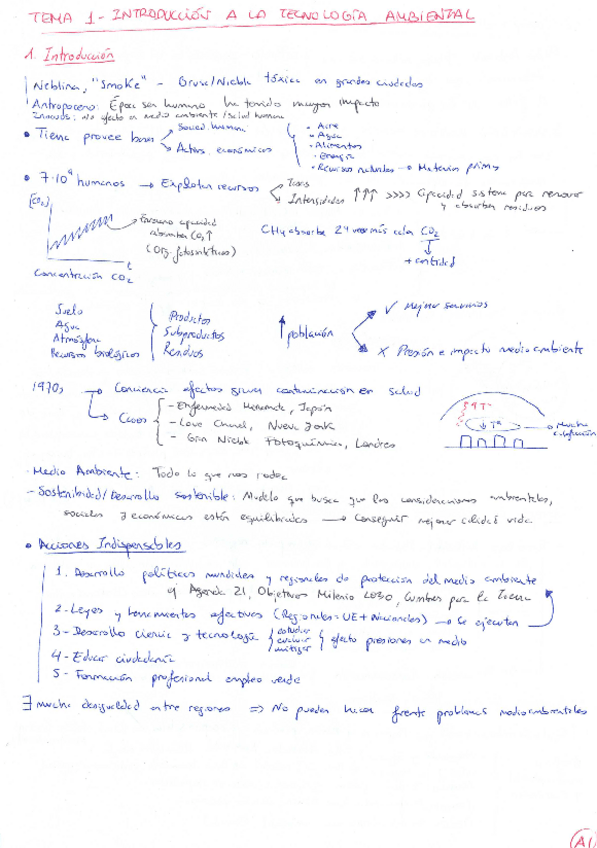 TEMA 1 - INTRODUCCIÓN A LA TECNOLOGÍA AMBIENTAL
1. Introducción
Neblina, "Smoke" - Bruma/Niebla tóxica en grandes ciudades
Antropoceno: Época ser humano ha tenido mayor impacto
Inocuos: no efecto en medio ambiente/salud humana
• Tierra provee bases
Socied. humana
Activs. económicas
• Aire
• Agua
• Alimentos
• Energía
• Recursos naturales → Materias primas
• 7·10⁹ humanos → Explotan recursos
Tasas
Intensidades ↑↑↑ >>>> Capacidad sistema para renovar
y absorber residuos
[CO₂]
capacidad
absorber CO₂↑
(Org. fotosintéticos)
t
Concentración CO₂
CH₄ absorbe veces más calor CO₂
+ cantidad
Suelo
Agua
Atmósfera
Recursos biológicos
Productos
Subproductos
Residuos
↑ población
✓ Mejorar servicios
X Presión e impacto medio ambiente
1970s → Conciencia efectos graves contaminación en salud
→ Casos
- Enfermedad Minamata, Japón
- Love Channel, Nueva York
- Gran Niebla Fotoquímica, Londres
↑Tª
↓Tª
Mucha
calefacción
- Medio Ambiente: Todo lo que nos rodea
- Sostenibilidad/Desarrollo sostenible: Modelo que busca que las consideraciones ambientales,
sociales y económicas estén equilibradas → Conseguir mejorar calidad vida
• Acciones Indispensables
1. Desarrollo políticas mundiales y regionales de protección del medio ambiente
ej Agenda 21, Objetivos Milenio 2030, Cumbres para la Tierra
2- Leyes y herramientas efectivas (Regionales = UE + Nacionales) → Se ejecutan
3- Desarrollo ciencia y tecnología
estudiar
evaluar
mitigar
efecto presiones en medio
4- Educar ciudadanía
5- Formación profesional empleo verde
∃ mucha desigualdad entre regiones => No pueden hacer frente problemas medioambientales
A1